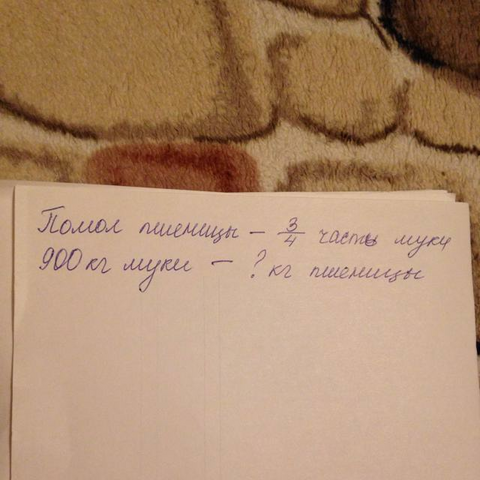 Помол пшеницы – 3/4 часть муки
900 кг муки – ? кг пшеницы